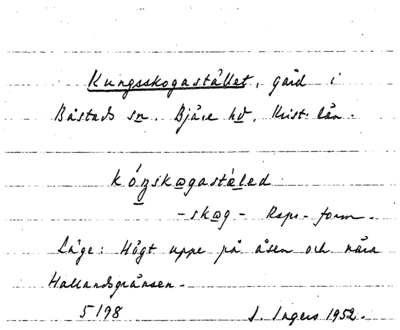 Kungsskogastället, gård i
Båstads sn. Bjäre hd, Krist. län.
kóŋskǝgastäled
-skǝg- Raps-form.
Läge: Högt uppe på åsen och nära
Hallandsgränsen.
5198 I. Ingers 1952.